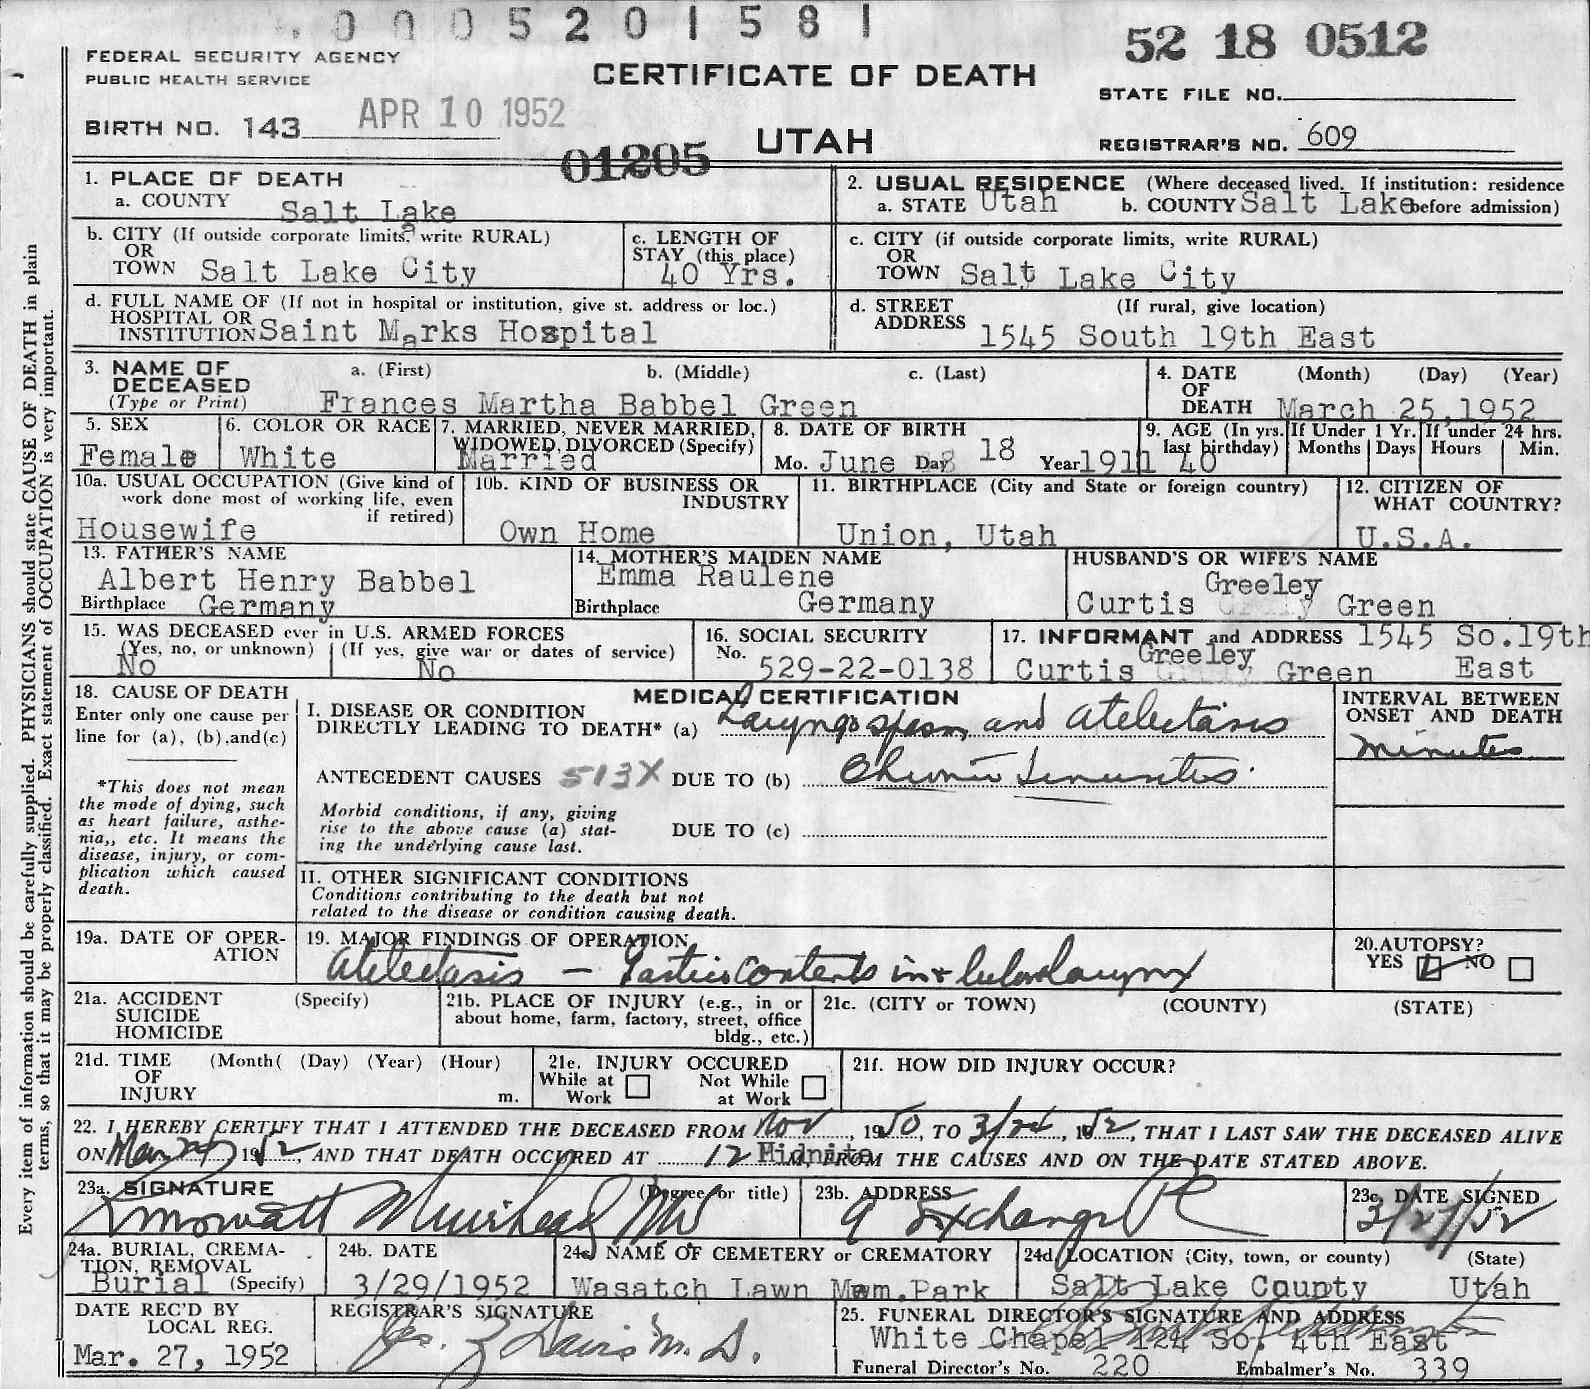 0005201581
52 18 0512
FEDERAL SECURITY AGENCY
PUBLIC HEALTH SERVICE
CERTIFICATE OF DEATH
STATE FILE NO.
BIRTH NO. 143 APR 10 1952
UTAH
REGISTRAR'S NO. 609
01205
1. PLACE OF DEATH
a. COUNTY Salt Lake
2. USUAL RESIDENCE (Where deceased lived. If institution: residence before admission)
a. STATE Utah b. COUNTY Salt Lake
b. CITY (If outside corporate limits, write RURAL)
OR
TOWN Salt Lake City
c. LENGTH OF
STAY (this place)
40 Yrs.
c. CITY (if outside corporate limits, write RURAL)
OR
TOWN Salt Lake City
d. FULL NAME OF (If not in hospital or institution, give st. address or loc.)
HOSPITAL OR
INSTITUTION Saint Marks Hospital
d. STREET (If rural, give location)
ADDRESS 1545 South 19th East
3. NAME OF
DECEASED
(Type or Print)
a. (First) b. (Middle) c. (Last)
Frances Martha Babbel Green
4. DATE (Month) (Day) (Year)
OF
DEATH March 25, 1952
5. SEX
Female
6. COLOR OR RACE
White
7. MARRIED, NEVER MARRIED,
WIDOWED, DIVORCED (Specify)
Married
8. DATE OF BIRTH
Mo. June Day 18 Year 1911
9. AGE (In yrs.
last birthday)
40
If Under 1 Yr.
Months Days
If under 24 hrs.
Hours Min.
10a. USUAL OCCUPATION (Give kind of
work done most of working life, even
if retired)
Housewife
10b. KIND OF BUSINESS OR
INDUSTRY
Own Home
11. BIRTHPLACE (City and State or foreign country)
Union, Utah
12. CITIZEN OF
WHAT COUNTRY?
U.S.A.
13. FATHER'S NAME
Albert Henry Babbel
Birthplace Germany
14. MOTHER'S MAIDEN NAME
Emma Raulene
Birthplace Germany
HUSBAND'S OR WIFE'S NAME
Greeley
Curtis Green
15. WAS DECEASED ever in U.S. ARMED FORCES
(Yes, no, or unknown) (If yes, give war or dates of service)
No No
16. SOCIAL SECURITY
No. 529-22-0138
17. INFORMANT and ADDRESS 1545 So. 19th
Greeley
Curtis Green East
18. CAUSE OF DEATH
Enter only one cause per
line for (a), (b), and(c)
*This does not mean
the mode of dying, such
as heart failure, asthe-
nia,, etc. It means the
disease, injury, or com-
plication which caused
death.
MEDICAL CERTIFICATION
I. DISEASE OR CONDITION
DIRECTLY LEADING TO DEATH* (a) Laryngospasm and atelectasis
ANTECEDENT CAUSES 513X DUE TO (b) Chronic Sinusitis
Morbid conditions, if any, giving
rise to the above cause (a) stat-
ing the underlying cause last.
DUE TO (c)
INTERVAL BETWEEN
ONSET AND DEATH
minutes
II. OTHER SIGNIFICANT CONDITIONS
Conditions contributing to the death but not
related to the disease or condition causing death.
19a. DATE OF OPER-
ATION
19. MAJOR FINDINGS OF OPERATION
atelectasis — contents in & below larynx
20. AUTOPSY?
YES NO
21a. ACCIDENT (Specify)
SUICIDE
HOMICIDE
21b. PLACE OF INJURY (e.g., in or
about home, farm, factory, street, office
bldg., etc.)
21c. (CITY or TOWN) (COUNTY) (STATE)
21d. TIME (Month( (Day) (Year) (Hour)
OF
INJURY m.
21e. INJURY OCCURED
While at Work Not While at Work
21f. HOW DID INJURY OCCUR?
22. I HEREBY CERTIFY THAT I ATTENDED THE DECEASED FROM Nov, 1950, TO 3/24, 1952, THAT I LAST SAW THE DECEASED ALIVE
ON Mar 24 1952, AND THAT DEATH OCCURED AT 12 Midnite m, FROM THE CAUSES AND ON THE DATE STATED ABOVE.
23a. SIGNATURE (Degree or title)
Mowatt Muirhead MD
23b. ADDRESS
9 Exchange Pl
23c. DATE SIGNED
3/27/52
24a. BURIAL, CREMA-
TION, REMOVAL
Burial (Specify)
24b. DATE
3/29/1952
24c. NAME OF CEMETERY or CREMATORY
Wasatch Lawn Mem. Park
24d. LOCATION (City, town, or county) (State)
Salt Lake County Utah
DATE REC'D BY
LOCAL REG.
Mar. 27, 1952
REGISTRAR'S SIGNATURE
Davis M.D.
25. FUNERAL DIRECTOR'S SIGNATURE AND ADDRESS
White Chapel 124 So. 4th East
Funeral Director's No. 220 Embalmer's No. 339
Every item of information should be carefully supplied. PHYSICIANS should state CAUSE OF DEATH in plain
terms, so that it may be properly classified. Exact statement of OCCUPATION is very important.